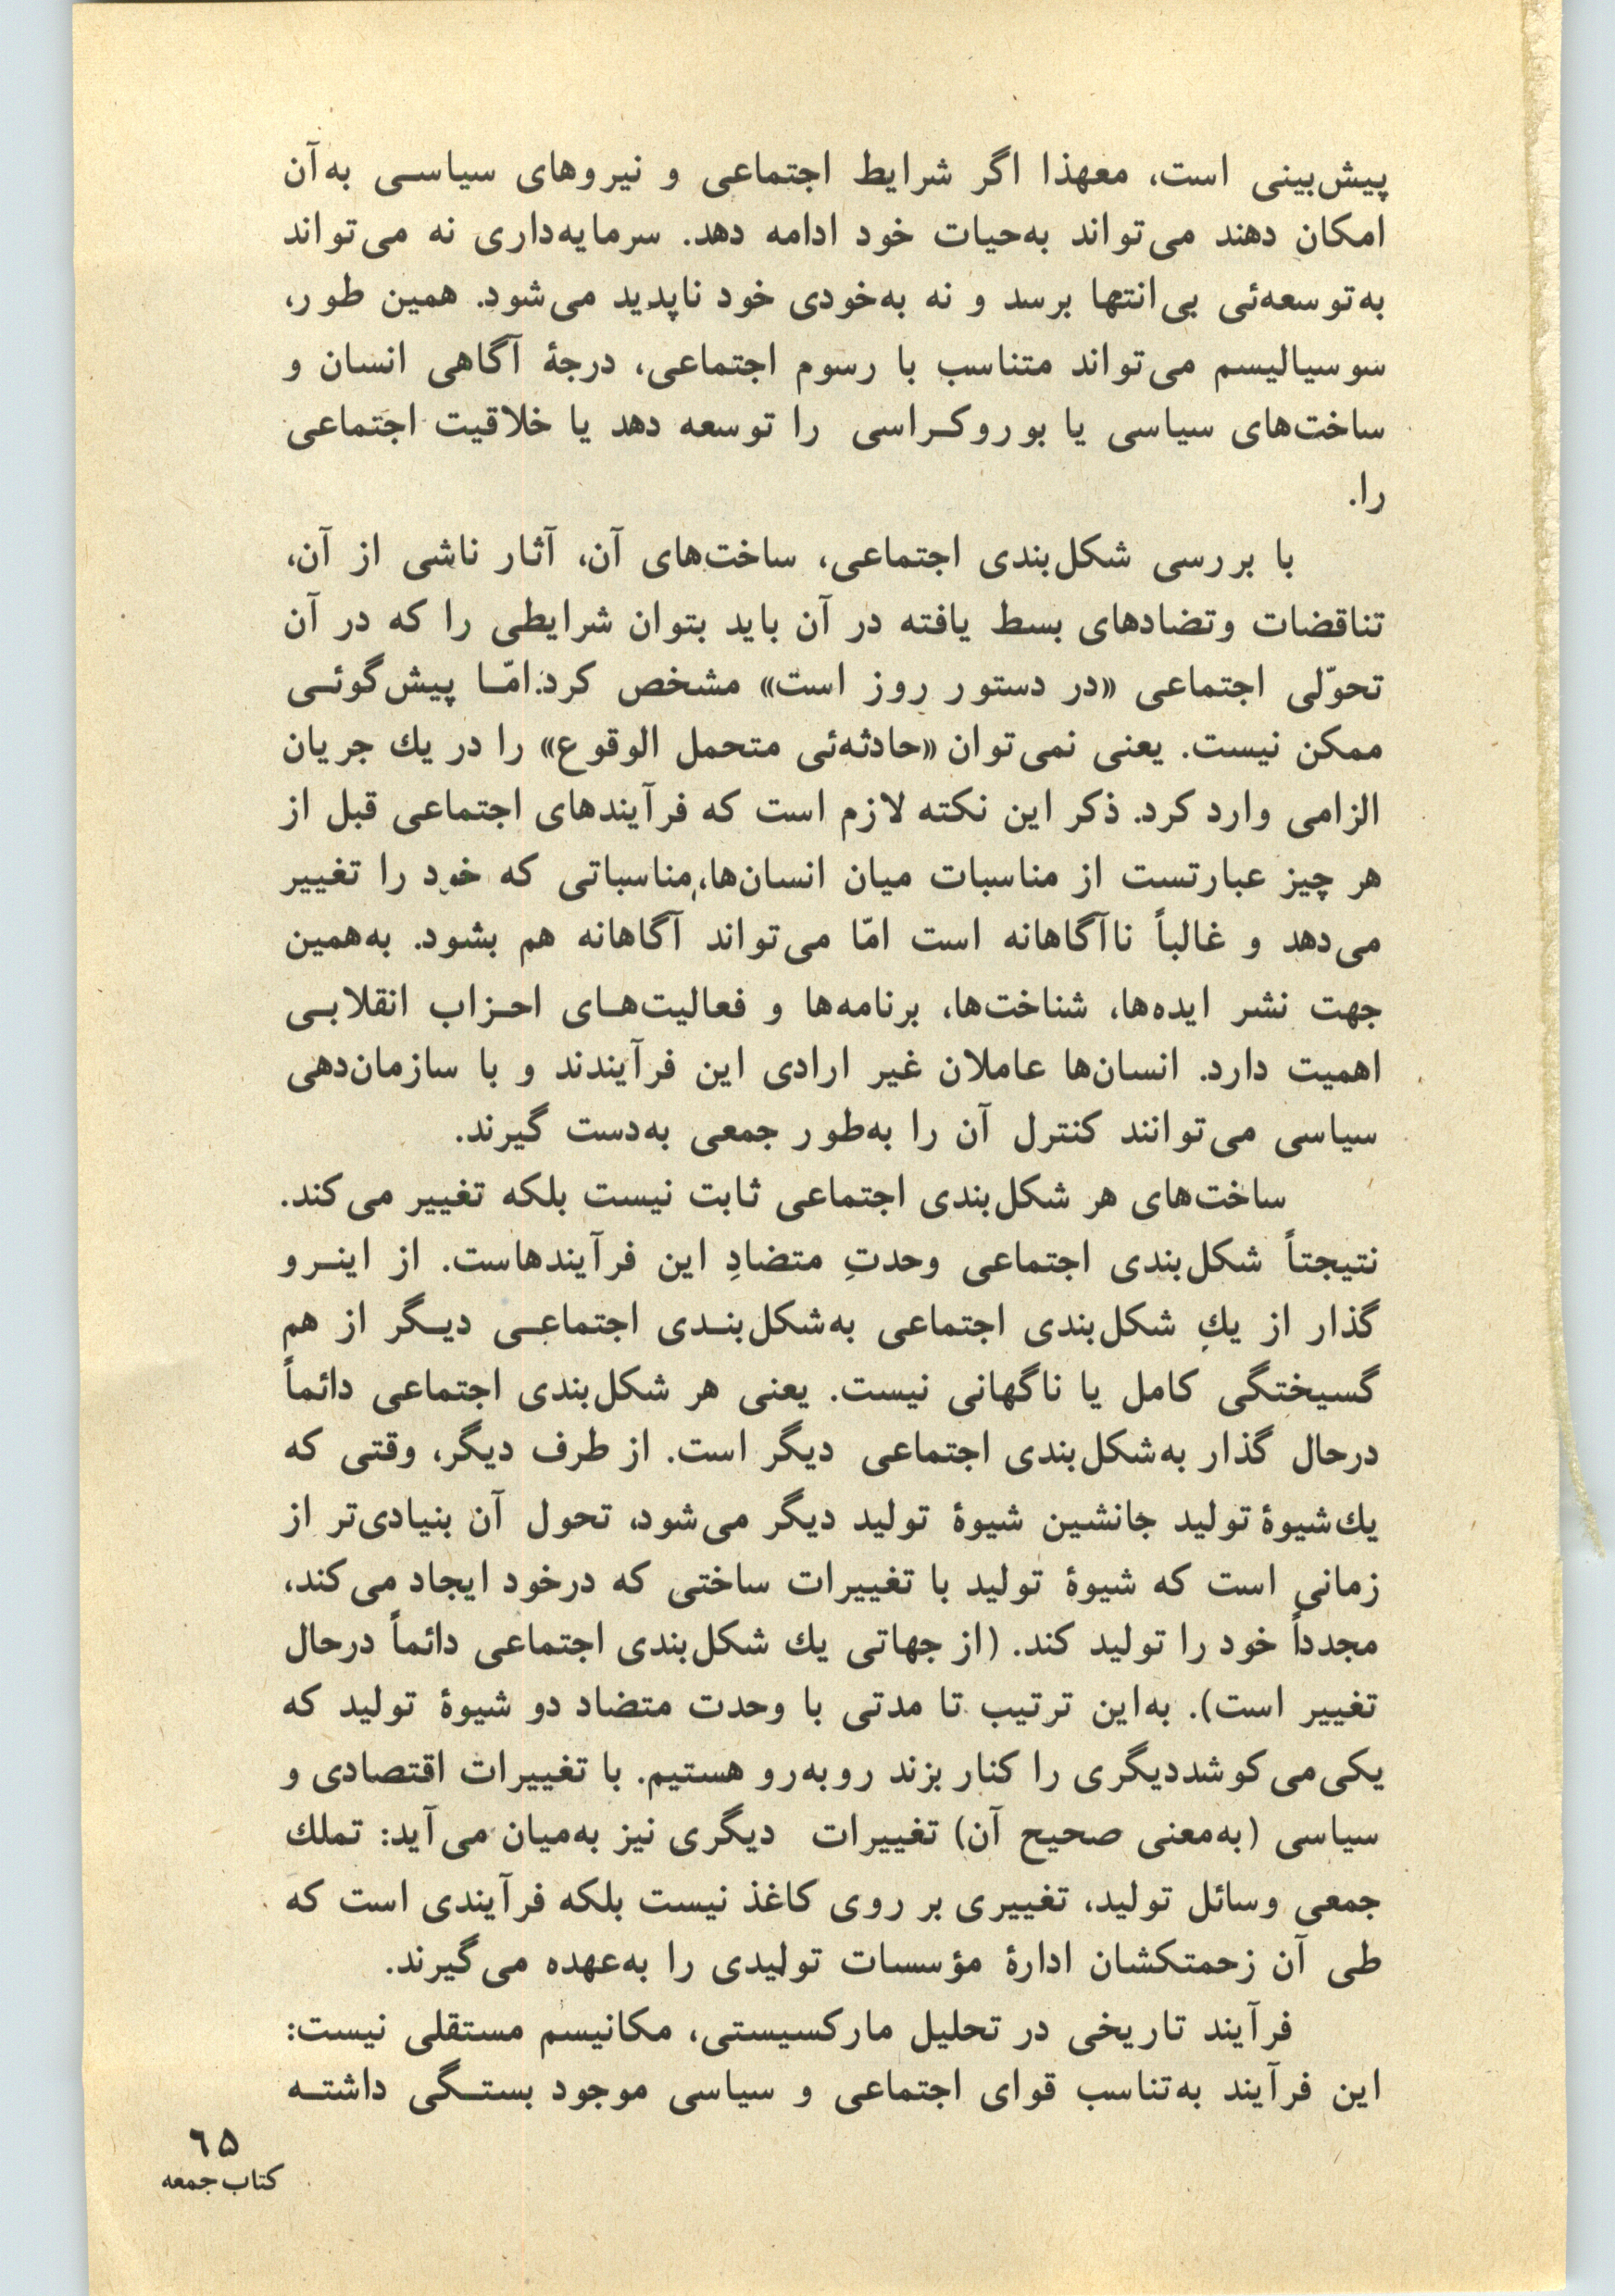 پیش‌بینی است، معهذا اگر شرایط اجتماعی و نیروهای سیاسی به‌آن
امکان دهند می‌تواند به‌حیات خود ادامه دهد. سرمایه‌داری نه می‌تواند
به‌توسعه‌ئی بی‌انتها برسد و نه به‌خودی خود ناپدید می‌شود. همین طور،
سوسیالیسم می‌تواند متناسب با رسوم اجتماعی، درجهٔ آگاهی انسان و
ساخت‌های سیاسی یا بوروکراسی را توسعه دهد یا خلاقیت اجتماعی
را.
با بررسی شکل‌بندی اجتماعی، ساخت‌های آن، آثار ناشی از آن،
تناقضات وتضادهای بسط یافته در آن باید بتوان شرایطی را که در آن
تحوّلی اجتماعی «در دستور روز است» مشخص کرد. امّا پیش‌گوئی
ممکن نیست. یعنی نمی‌توان «حادثه‌ئی متحمل الوقوع» را در یك جریان
الزامی وارد کرد. ذکر این نکته لازم است که فرآیندهای اجتماعی قبل از
هر چیز عبارتست از مناسبات میان انسان‌ها، مناسباتی که خود را تغییر
می‌دهد و غالباً ناآگاهانه است امّا می‌تواند آگاهانه هم بشود. به‌همین
جهت نشر ایده‌ها، شناخت‌ها، برنامه‌ها و فعالیت‌های احزاب انقلابی
اهمیت دارد. انسان‌ها عاملان غیر ارادی این فرآیندند و با سازمان‌دهی
سیاسی می‌توانند کنترل آن را به‌طور جمعی به‌دست گیرند.
ساخت‌های هر شکل‌بندی اجتماعی ثابت نیست بلکه تغییر می‌کند.
نتیجتاً شکل‌بندی اجتماعی وحدتِ متضادِ این فرآیندهاست. از اینرو
گذار از یكِ شکل‌بندی اجتماعی به‌شکل‌بندی اجتماعی دیگر از هم
گسیختگی کامل یا ناگهانی نیست. یعنی هر شکل‌بندی اجتماعی دائماً
درحال گذار به‌شکل‌بندی اجتماعی دیگر است. از طرف دیگر، وقتی که
یك‌شیوهٔ تولید جانشین شیوهٔ تولید دیگر می‌شود، تحول آن بنیادی‌تر از
زمانی است که شیوهٔ تولید با تغییرات ساختی که درخود ایجاد می‌کند،
مجدداً خود را تولید کند. (از جهاتی یك شکل‌بندی اجتماعی دائماً درحال
تغییر است). به‌این ترتیب تا مدتی با وحدت متضاد دو شیوهٔ تولید که
یکی‌می‌کوشددیگری را کنار بزند روبه‌رو هستیم. با تغییرات اقتصادی و
سیاسی (به‌معنی صحیح آن) تغییرات دیگری نیز به‌میان می‌آید: تملك
جمعی وسائل تولید، تغییری بر روی کاغذ نیست بلکه فرآیندی است که
طی آن زحمتکشان ادارهٔ مؤسسات تولیدی را به‌عهده می‌گیرند.
فرآیند تاریخی در تحلیل مارکسیستی، مکانیسم مستقلی نیست:
این فرآیند به‌تناسب قوای اجتماعی و سیاسی موجود بستگی داشته
۶۵
کتاب جمعه